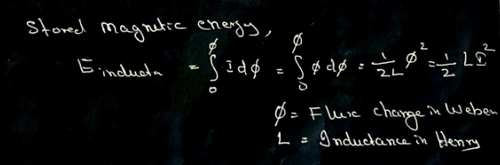 Stored magnetic energy,
E inductor = ∫₀^φ I dφ = ∫₀^φ φ dφ = 1/2L φ² = 1/2 L I²
φ = Flux change in Weber
L = Inductance in Henry